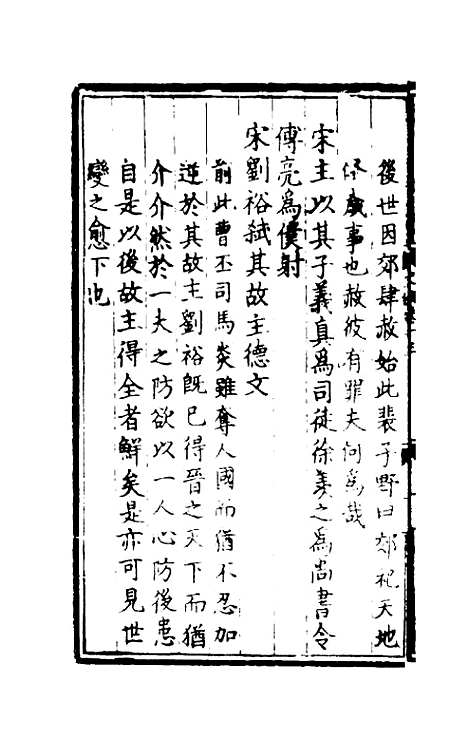 後世因郊肆赦始此裴子野曰郊祀天地
修歲事也赦彼有罪夫何為哉
宋主以其子義真為司徒徐羨之為尚書令
傅亮為僕射
宋劉裕弒其故主德文
前此曹丕司馬炎雖奪人國而猶不忍加
逆於其故主劉裕既已得晉之天下而猶
介介然於一夫之防欲以一人心防後患
自是以後故主得全者鮮矣是亦可見世
變之愈下也